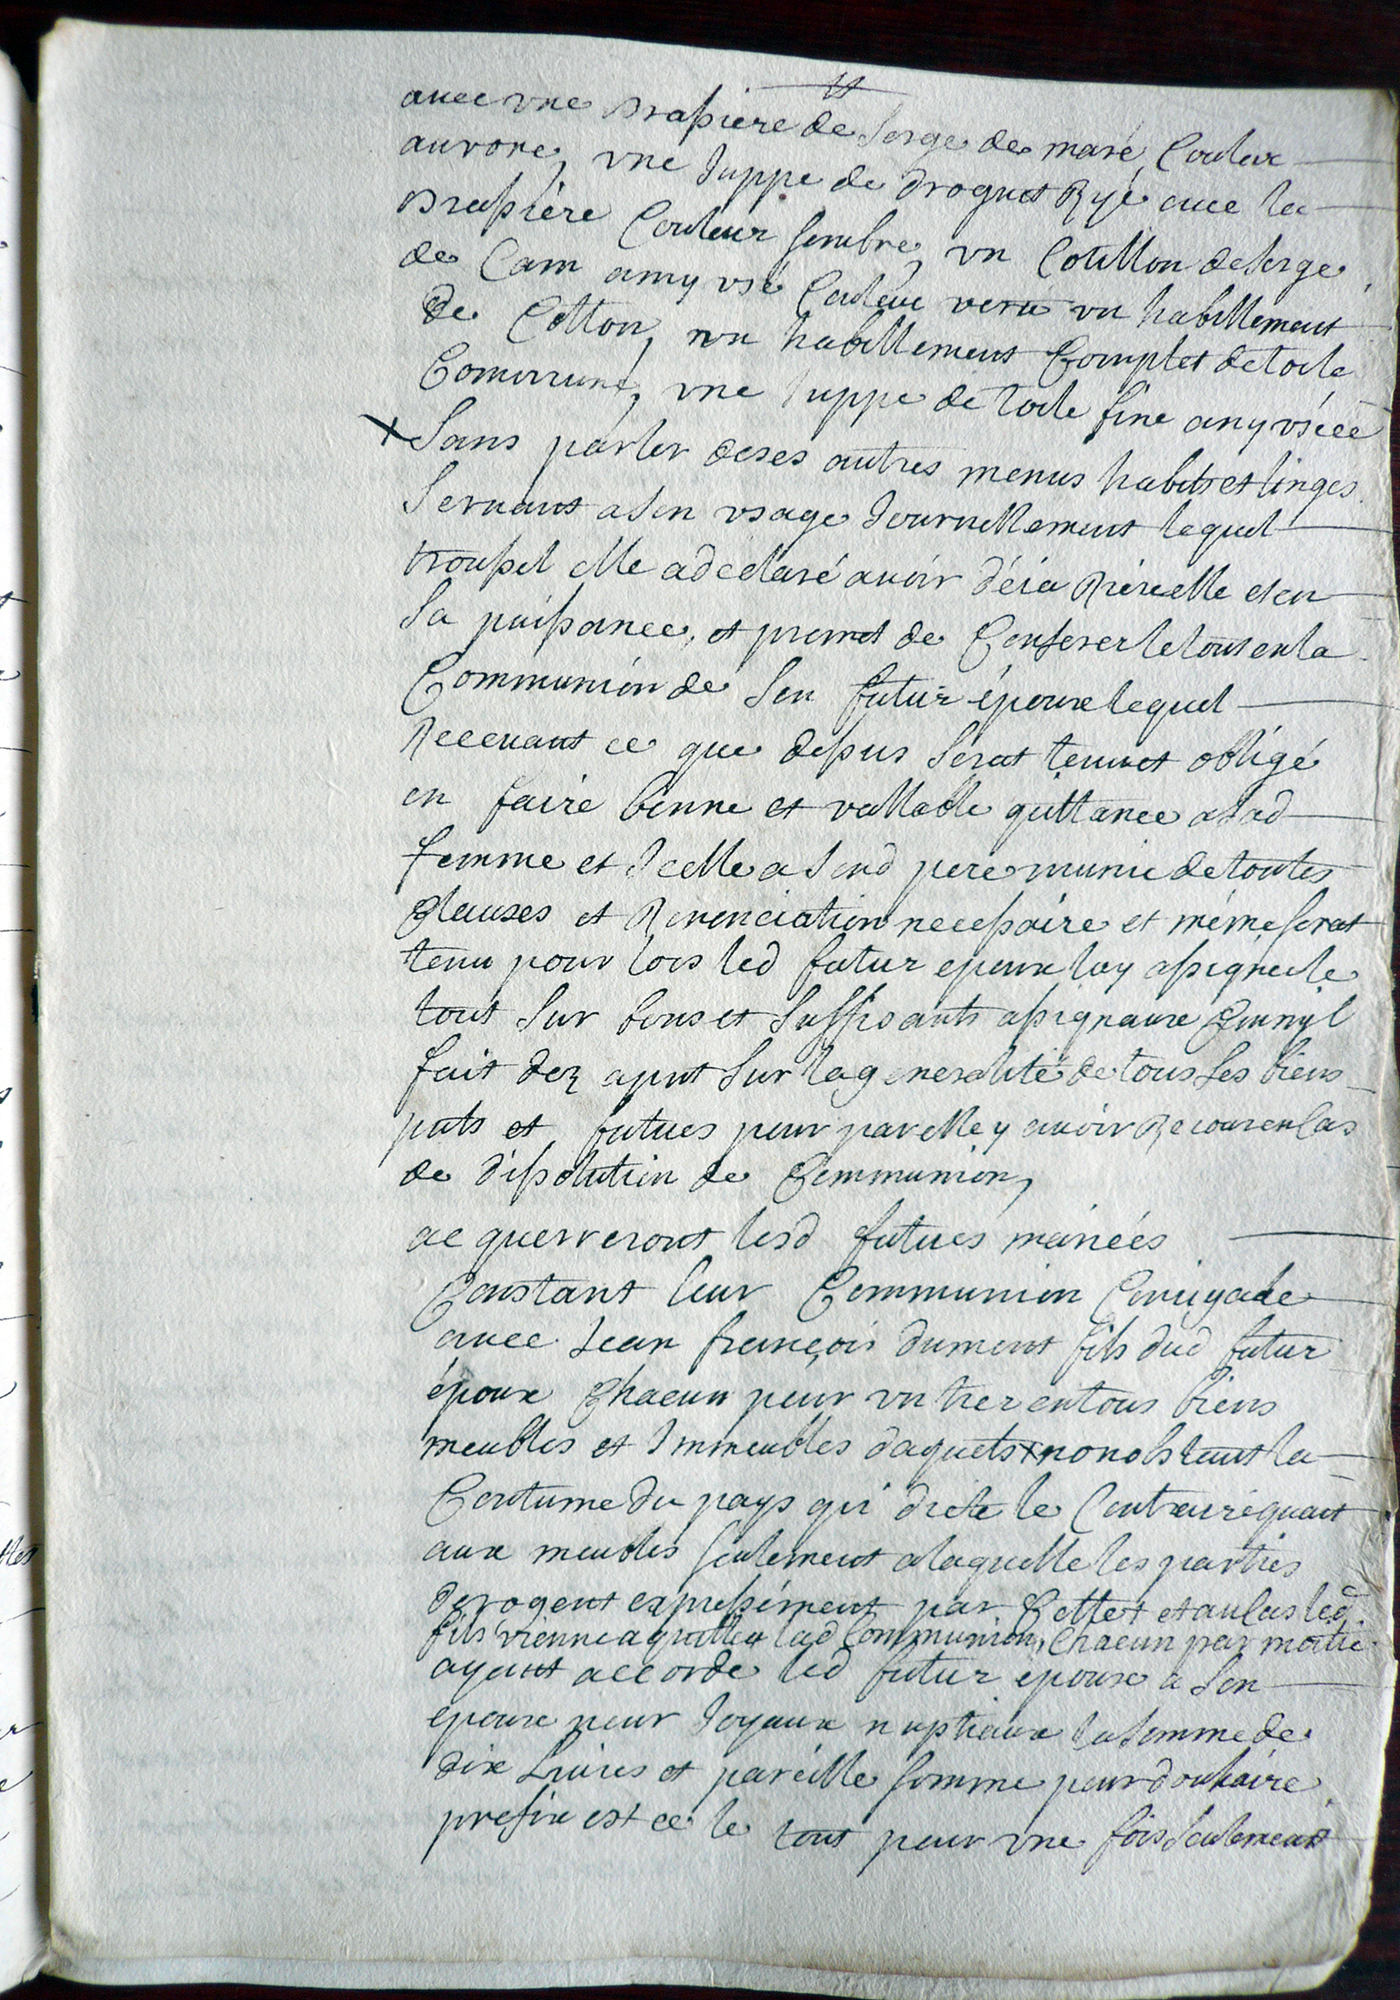 avec une Brassiere de Serge de maré Couleur
aurore, une Juppe de droguet Rÿé avec la
Brassiére Couleur sombre, un Cotillon de serge
de Cam amy usé Couleur verte un habillement
de Cotton, un habillement Complet de toile
Commune, une Juppe de toile fine amy usééé
x Sans parler de ses autres menus habits et linges
Servant a son usage Journellement lequel
troussel elle a déclaré avoir déia Riére elle et en
Sa puissance, et promet de Conferer le tout en la
Communion de Son futur époux lequel
Recevant ce que dessus Serat tenu et obligé
en faire bonne et vallable quittance a sad
femme et Jcelle a Sond pere munie de toutes
Clauses et Renonciation necessaire et même serat
tenu pour lors led futur epoux luy assigner le
tout Sur bons et Suffisants assignaux Comm'il
fait dez apnt Sur la generalité de tous Ses biens
pnts et futurs pour par elle y avoir Recour en Cas
de dissolution de Communion,
acquerreront lesd futurs mariées
Constant leur Communion Coniugale
avec Jean françois dumont fils dud futur
époux Chacun pour un tier en tous biens
meubles et Jmmeubles daquets x nonobstant la
Coutume du pays qui dicte le Contraire quant
aux meubles seulement a laquelle les parties
derogent expressément par Cettes et au Cas led
fils vienne a quitter lad Communion, Chacun par moitié
ayant accordé led futur epoux a Son
epouse pour Joyaux nuptiaux la somme de
dix Livres et pareille somme pour douhaire
prefix est ce le tout pour une fois seulement